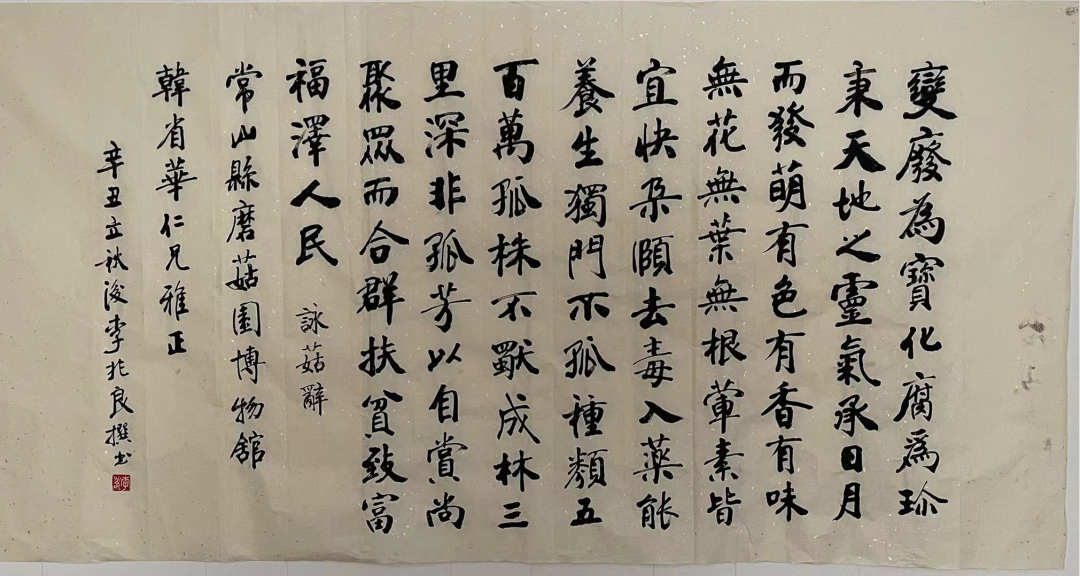 變廢為寶化腐為珍
秉天地之靈氣承日月
而發萌有色有香有味
無花無葉無根葷素皆
宜快朵頤去毒入藥能
養生獨門不孤種類五
百萬孤株不獸成林三
里深非孤芳以自賞尚
聚眾而合群扶貧致富
福澤人民 詠菇辭
常山縣磨菇園博物舘
韓省華仁兄雅正
辛丑立秋後李北良撰书